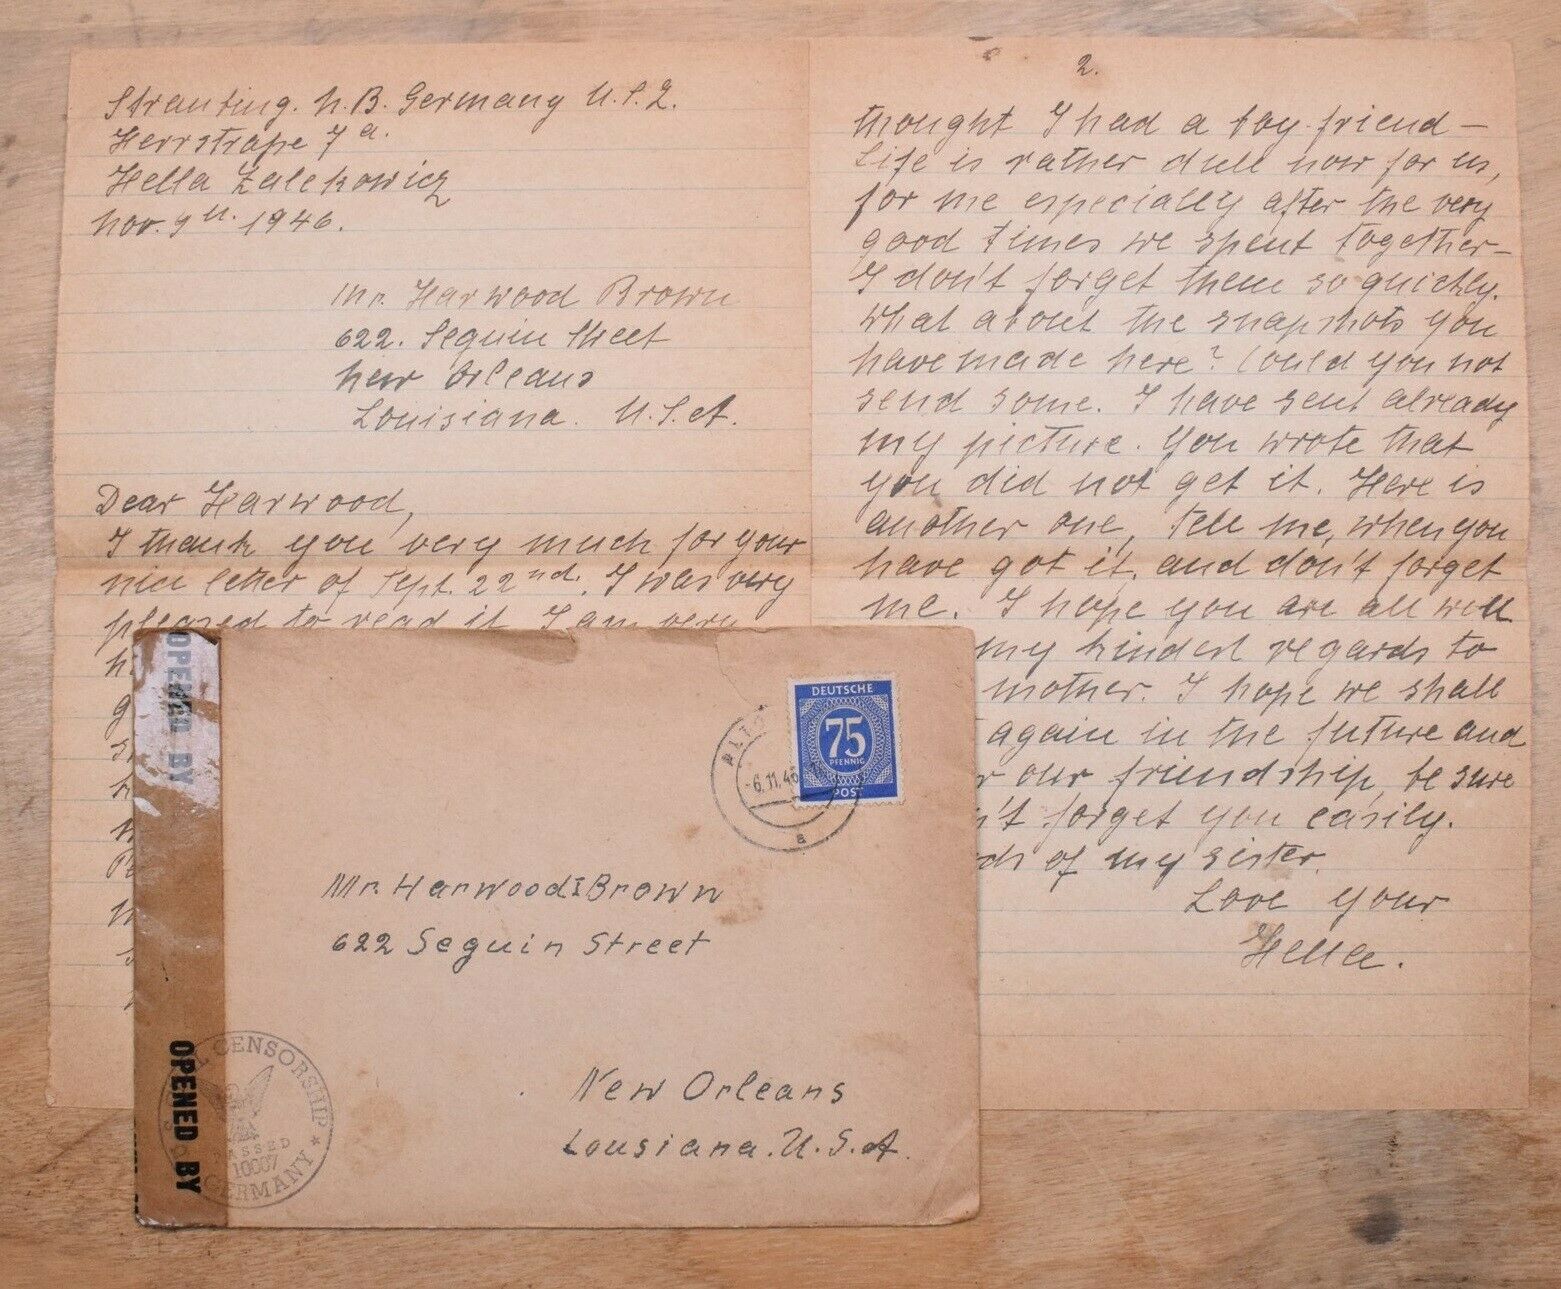 Strauting. N.B. Germany U.S.Z.
Herrstraße 7a.
Hella Zalekowicz
Nov. 9th. 1946.
Mr. Harwood Brown
622. Seguin Street
New Orleans
Louisiana. U.S.A.
Dear Harwood,
I thank you very much for your
nice letter of Sept. 22nd. I was very
pleased to read it. I am very
2.
thought I had a boy-friend –
Life is rather dull now for us,
for me especially after the very
good times we spent together –
I don't forget them so quickly.
What about the snapshots you
have made here? Could you not
send some. I have sent already
my picture. You wrote that
you did not get it. Here is
another one, tell me, when you
have got it, and don't forget
me. I hope you are all well
my kindest regards to
mother. I hope we shall
again in the future and
our friendship, be sure
forget you easily.
of my sister.
Love your
Hella.
OPENED BY
DEUTSCHE
75
PFENNIG
POST
6.11.46
a
Mr. Harwood I Brown
622 Seguin Street
New Orleans
Lousiana. U.S.A.
OPENED BY
CENSORSHIP
PASSED
10007
GERMANY